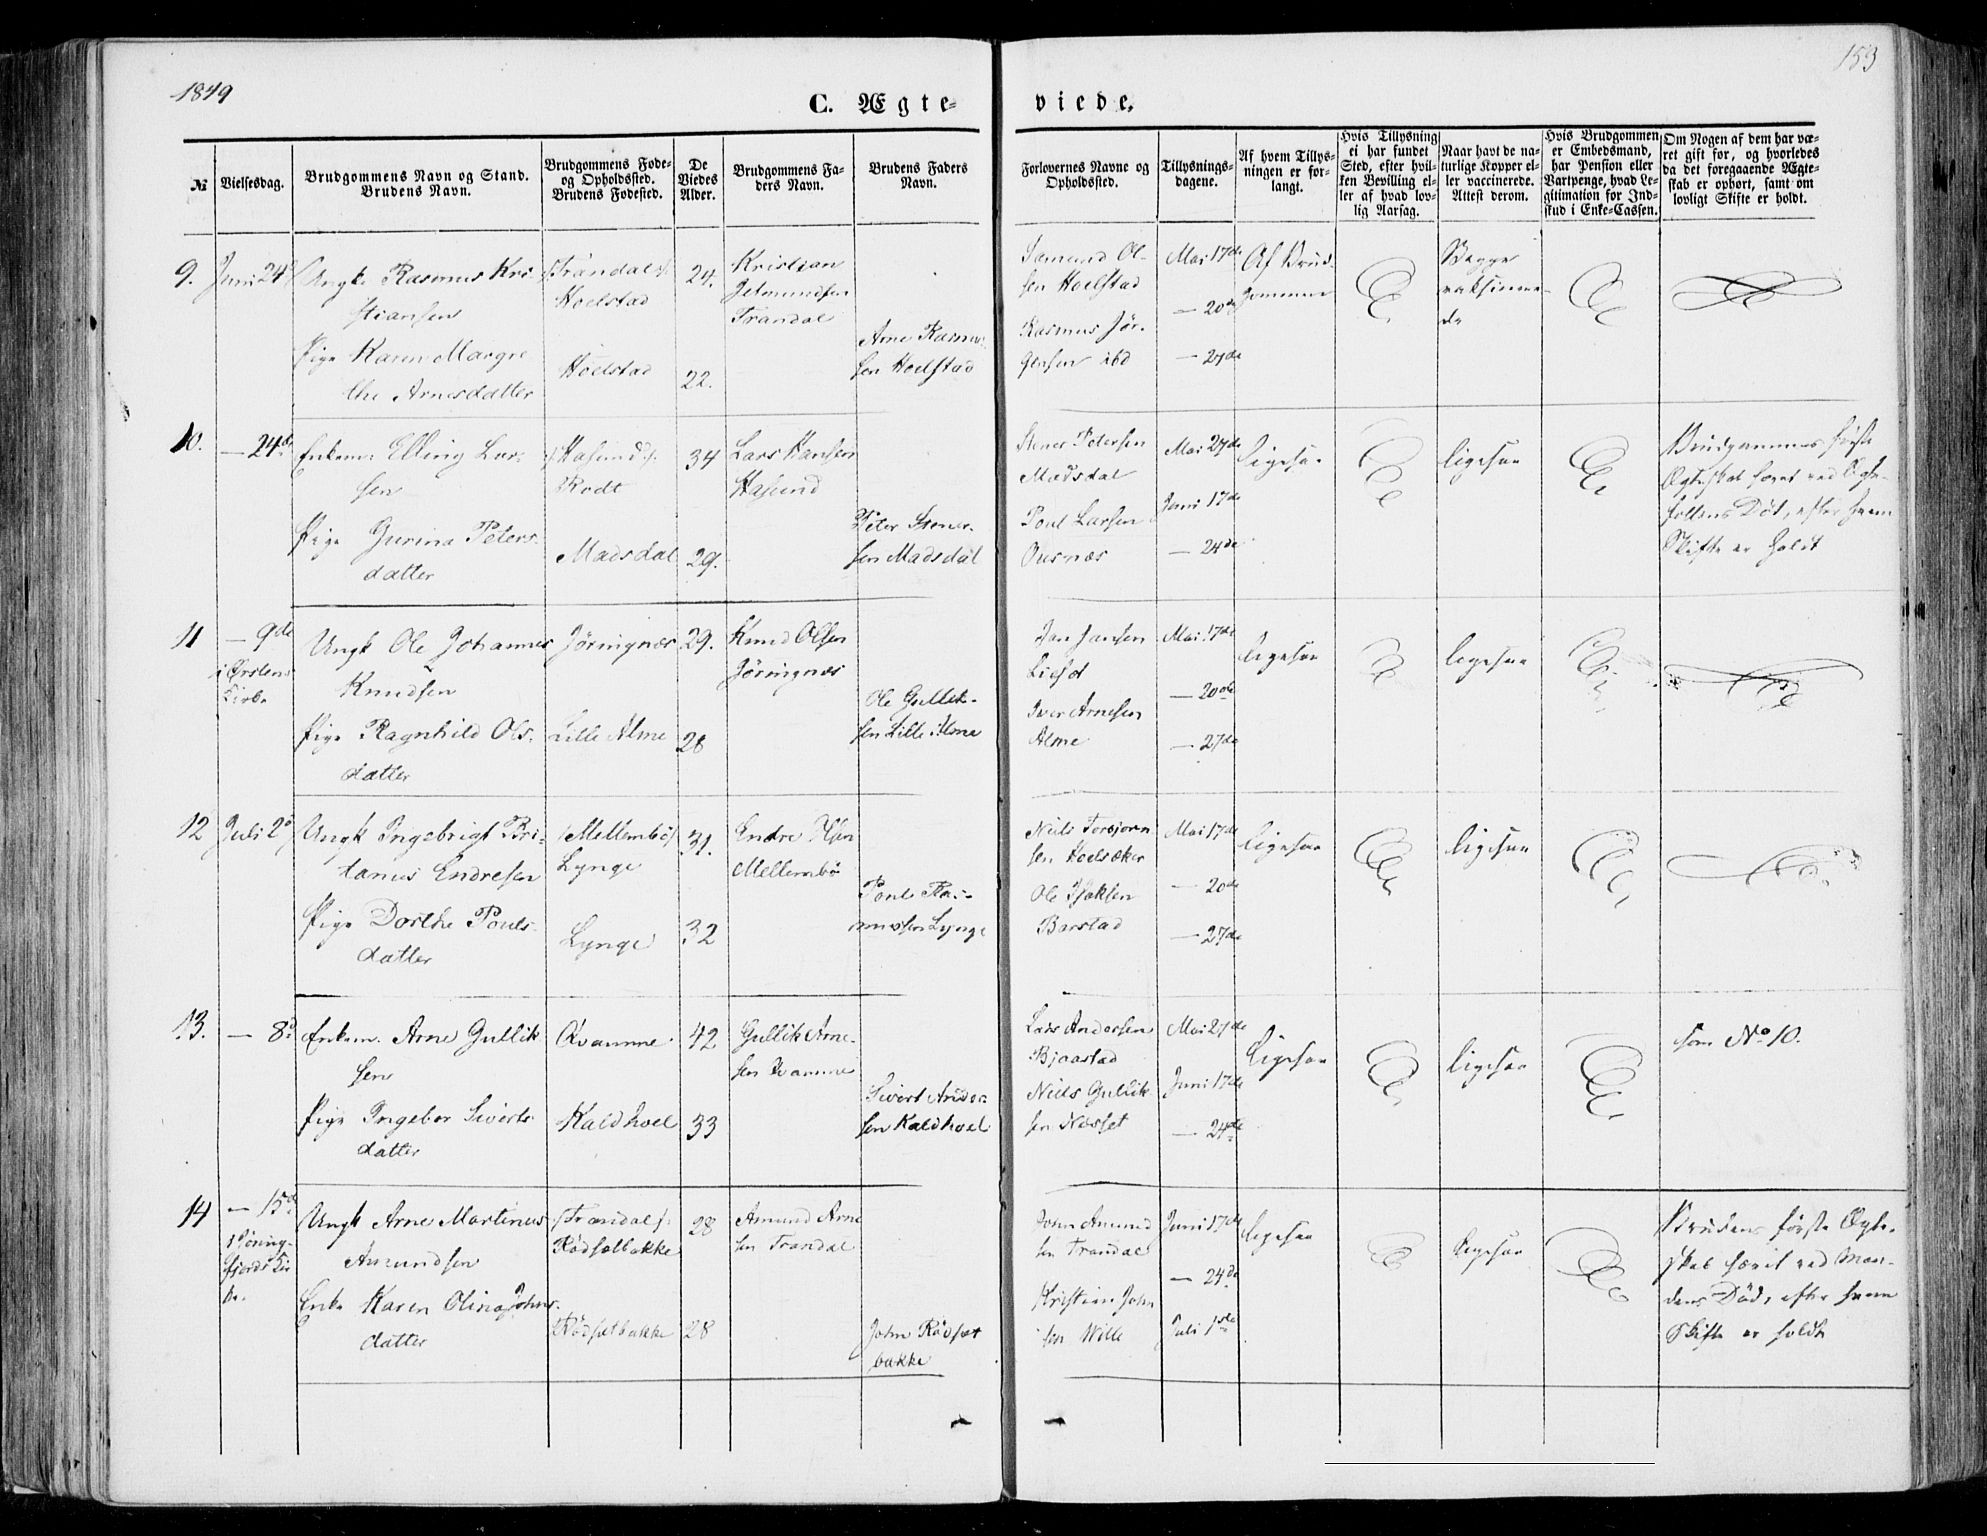 1849
153
C. Ægte-
viede.
№
Vielsesdag.
Brudgommens Navn og Stand.
Brudens Navn.
Brudgommens Føde-
og Opholdssted.
Brudens Fødested.
De
Viedes
Alder.
Brudgommens Fa-
ders Navn.
Brudens Faders
Navn.
Forlovernes Navne og
Opholdssted.
Tillysnings-
dagene.
Af hvem Tillys-
ningen er for-
langt.
Hvis Tillysning
ei har fundet
Sted, efter hvil-
ken Bevilling el-
ler af hvad lov-
lig Aarsag.
Naar havt de na-
turlige Kopper el-
ler vaccinerede.
Attest derom.
Hvis Brudgommen
er Embedsmand,
har Pension eller
Vartpenge, hvad Le-
gitimation for Ind-
skud i Enke-Cassen.
Om Nogen af dem har væ-
ret gift før, og hvorledes
da det foregaaende Ægte-
skab er ophørt, samt om
lovligt Skifte er holdt.
9.
Juni 24
Ungk Rasmus Kri-
stiansen
Pige Karen Margre
the Arnesdatter
Trandal
Hoelstad
Hoelstad
24.
22.
Kristian
Jetmundsen
Trandal
Arne Rasmu-
sen Hoelstad
Samund Ol-
sen Hoelstad
Rasmus Jør-
gensen ibd
Mai 17de
— 20de
— 27de
Af Brud-
gommen
Begge
vaksinere-
de
10.
— 24de
Enkem. Elling Lar-
sen
Pige Gurina Peters-
datter
Hasund
Rødt
Madsdal
34
29.
Lars Hansen
Hasund
Peter Stener-
sen Madsdal
Stener Petersen
Madsdal
Poul Larsen
Ousnæs
Mai 27de
Juni 17de
— 24de
ligesaa
ligesaa
Brudgommens første
Ægteskab hævet ved Ægte-
fællens Død, efter hvem
Skifte er holdt
11
— 9de
i Ørstens
Kirke
Ungk Ole Johannes
Knudsen
Pige Ragnhild Ols-
datter
Jøringnæs
Lille Alme
29.
28
Knud Olsen
Jøringnæs
Ole Gullik-
sen Lille Alme
Jan Jansen
Iver Arnesen
Alme
Mai 17de
— 20de
— 27de
ligesaa
ligesaa
12
Juli 2
Ungk Ingebrigt Bri-
tanus Endresen
Pige Dorthe Pouls-
datter
Mellembø
Lynge
Lynge
31.
32
Endre
Mellembø
Poul Ras-
mussen Lynge
Niels Torbjørn
sen Hoelsæker
Ole Isaksen
Barstad
Mai 17de
— 20de
— 27de
ligesaa
ligesaa
13.
— 8
Enkem. Arne Gullik
sen
Pige Ingebor Siverts
datter
Qvamme
Kaldhoel
42
33
Gullik Arne-
sen Qvamme
Sivert Ander-
sen Kaldhoel
Lars Andersen
Bjaastad
Niels Gullik
sen Næsset
Mai 27de
Juni 17de
— 24de
Ligesaa
ligesaa
som No 10.
14
— 15de
i Jøring-
fjords Kir
ke.
Ungk Arne Martinus
Amundsen
Enke Karen Olina Johns-
datter
Trandal
Rødsætbakke
Rødsætbakke
28
28
Amund Arne
sen Trandal
John Rødsæt
bakke
John Amund
sen Trandal
Kristian John
sen Wille
Juni 17de
— 24de
Juli 1ste
ligesaa
ligesaa
Brudens første Ægte-
skab hævet ved Man-
dens Død, efter hvem
Skifte er holdt